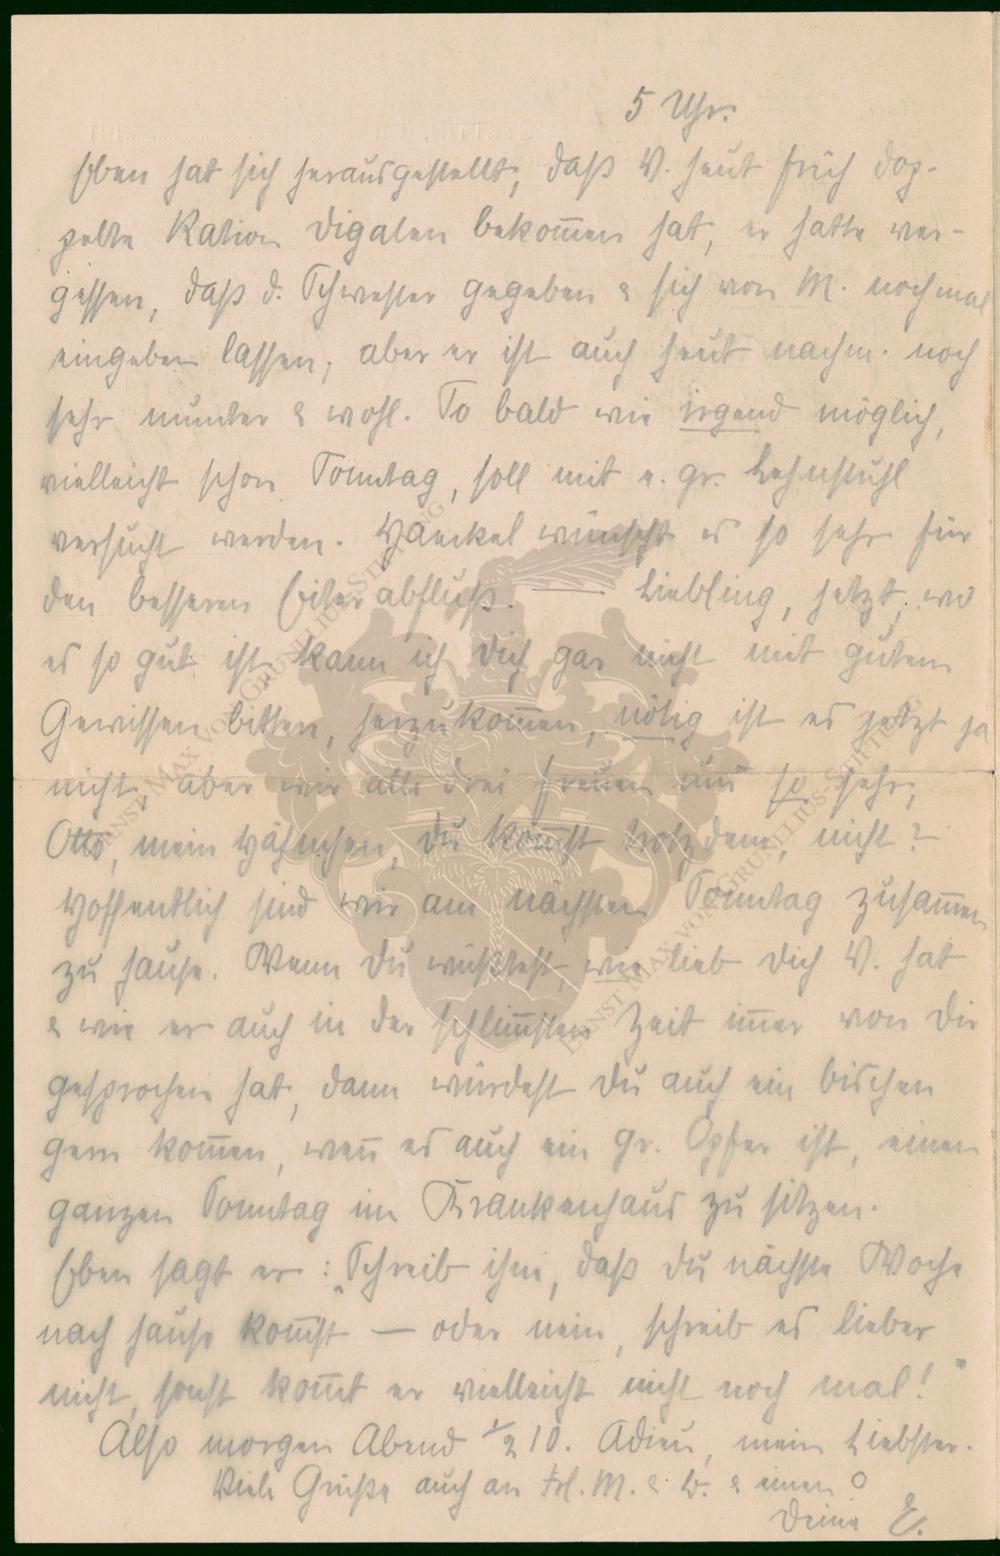 5 Uhr.
Eben hat sich herausgestellt, daß V. heut früh dop-
pelte Ration Digalen bekom̅en hat, er hatte ver-
gessen, daß d. Schwester gegeben & sich von M. nochmal
eingeben lassen, aber er ist auch heut nachm. noch
sehr munter & wohl. So bald wie irgend möglich,
vielleicht schon Sonntag, soll mit e. gr. Lehnstuhl
versucht werden. Haeckel wünscht es so sehr für
den besseren Eiterabfluß. — Liebling, jetzt, wo
es so gut ist, kann ich Dich gar nicht mit gutem
Gewissen bitten, herzukom̅en, nötig ist es jetzt ja
nicht, aber wir alle drei freuen uns so sehr,
Otto, mein Hähnchen, Du kom̅st trotzdem, nicht?
Hoffentlich sind wir am nächsten Sonntag zusam̅en
zu hause. Wenn Du wüßtest, wie lieb Dich V. hat
& wie er auch in der schlim̅sten Zeit im̅er von Dir
gesprochen hat, dann würdest Du auch ein bischen
gern kom̅en, wen̅ es auch ein gr. Opfer ist, einen
ganzen Sonntag im Krankenhaus zu sitzen.
Eben sagt er: „Schreib ihm, daß Du nächste Woche
nach hause kom̅st — oder nein, schreib es lieber
nicht, sonst kom̅t er vielleicht nicht noch mal!"
Also morgen Abend ½ 10. Adieu, mein Liebster.
Viele Grüße auch an Frl. M. & W. & einen O
Deine E.
ERNST MAX VON GRUNELIUS-STIFTUNG
ERNST MAX VON GRUNELIUS-STIFTUNG